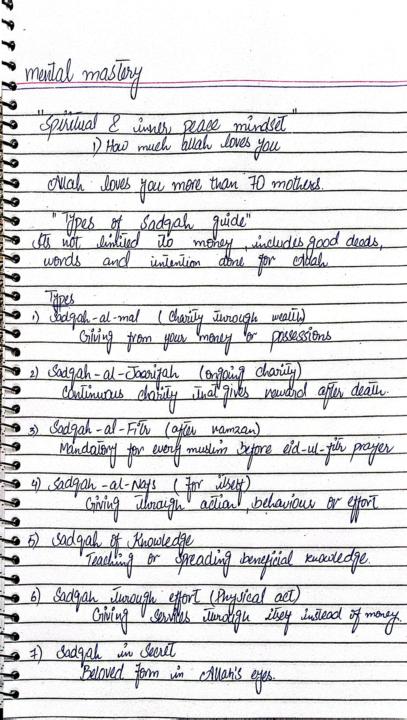 mental mastery
"Spiritual & inner peace mindset"
1) How much allah loves you
Allah loves you more than 70 mothers.
"Types of Sadqah guide"
Its not limited to money, includes good deeds,
words and intention done for Allah
Types
1) Sadqah-al-mal (Charity through wealth)
Giving from your money or possessions
2) Sadqah-al-Jaariyah (ongoing charity)
Continuous charity that gives reward after death.
3) Sadqah-al-Fitr (after ramzan)
Mandatory for every muslim before eid-ul-fitr prayer
4) Sadqah-al-Nafs (for itself)
Giving through action, behaviour or effort
5) Sadqah of Knowledge
Teaching or spreading beneficial knowledge.
6) Sadqah through effort (Physical act)
Giving services through itself instead of money.
7) Sadqah in Secret
Beloved form in Allah's eyes.